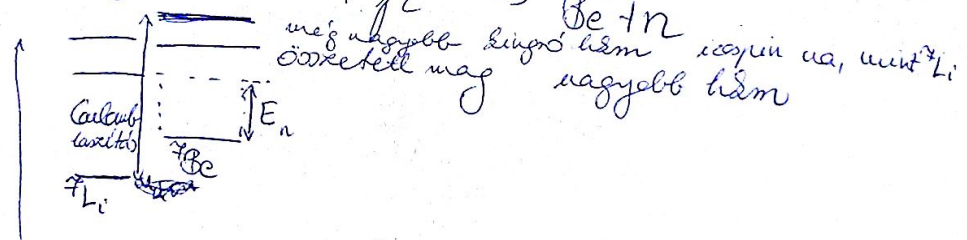 Be + n
még nagyobb hám izospin va, mint ⁷Li
összetett mag nagyobb hám
Coulomb
taszítás
Eₙ
⁷Be
⁷Li